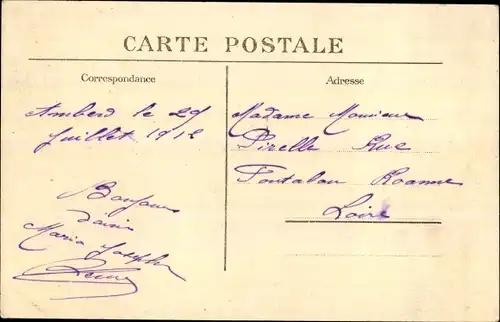 CARTE POSTALE
Correspondance
Adresse
Ambert le 29
Juillet 1912
Bonjour
d'ami
Maria Joseph
Madame Monsieur
Pirelle Rue
Fontalon Roanne
Loire